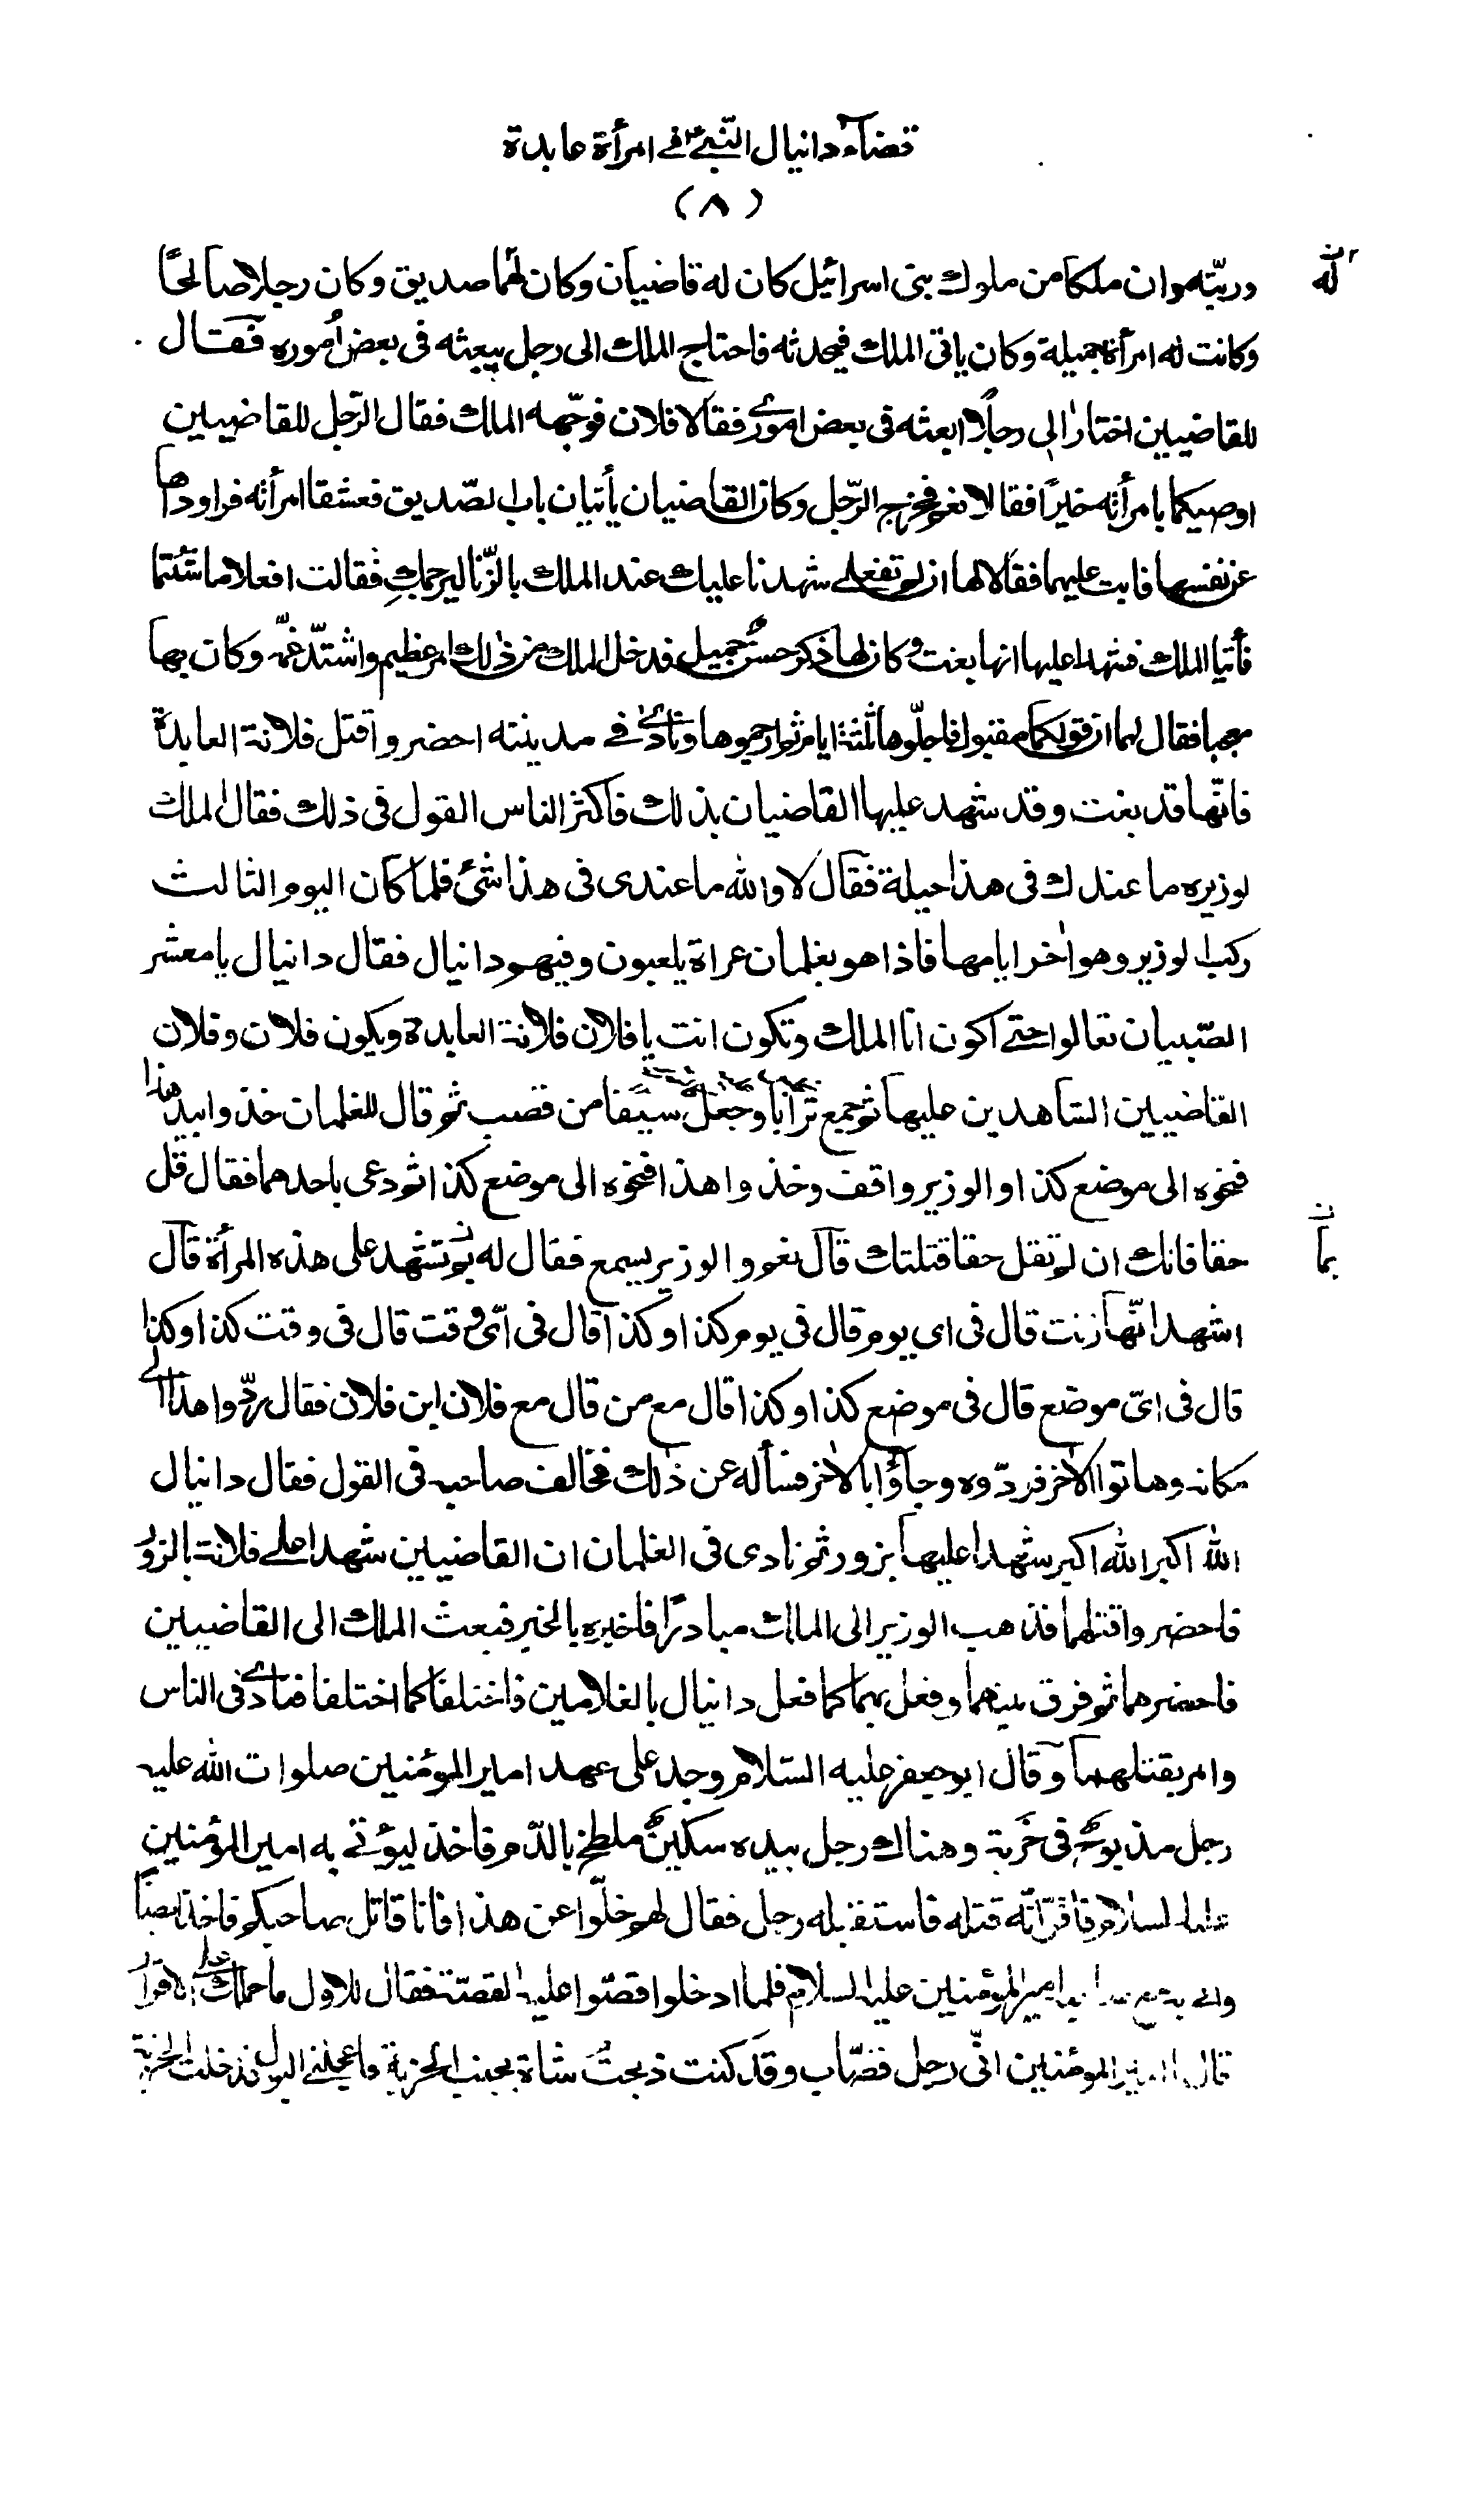 قضآء دانيال النّبىّ فے امرأة عابدة
(٨)
وربّته وان ملكا من ملوك بنى اسرائيل كان له قاضيان وكان لهما صديق وكان رجلا صالحًا
له
وكانت له امرأة جميلة وكان ياتى الملك فيحدثه فاحتاج الملك الى رجل يبعثه فى بعض أموره فقال
للقاضيين اختارا لى رجلًا ابعثه فى بعض امورے فقالا فلان فوجّهه الملك فقال الرّجل للقاضيين
اوصيكما بامرأته خيرًا فقالا نعم فخرج الرّجل وكان القاضيان يأتيان باب الصّديق فعشقا امرأته فراوداها
عن نفسها فابت عليهما فقالا لها ان لم تفعلے شهدنا عليك عند الملك بالزّنا ليرجمكِ فقالت افعلا ما شئتما
فأتيا الملك فشهدا عليها انها بغت وكان لها ذكر حسن جميل فدخل الملك من ذٰلك امر عظيم واشتدّ غمّه وكان بها
معجبا فقال لهما ان قولكما مقبول فاجلّوها ثلثة ايام ثم ارجموها ونادٰے فے مدينته احضروا قتل فلانة العابدة
فانّها قد بغت وقد شهد عليها القاضيان بذلك فاكثر الناس القول فى ذلك فقال الملك
لوزيره ما عندك فى هذا حيلة فقال لا والله ما عندى فى هذا شئ فلما كان اليوم الثالث
ركب الوزير وهو اٰخر ايامها فاذا هو بغلمان عراة يلعبون وفيهم دانيال فقال دانيال يا معشر
الصّبيان تعالوا حتے اكون انا الملك وتكون انت يا فلان فلانة العابدة ويكون فلان وفلان
القاضيين الشاهدين عليها ثم جمع ترابا وجعل سيفا من قصب ثم قال للغلمان خذوا بيد هذا
فنحوه الى موضع كذا والوزير واقف وخذوا هذا فنحوه الى موضع كذا ثم دعى باحدهما فقال قل
حقا فانك ان لم تقل حقا قتلتك قال نعم والوزير يسمع فقال له بم تشهد على هذه المرأة قال
بما
اشهد انّها زنت قال فى اى يوم قال فى يوم كذا وكذا قال فى اىّ وقت قال فى وقت كذا وكذا
قال فى اىّ موضع قال فى موضع كذا وكذا قال مع من قال مع فلان ابن فلان فقال ردّوا هذا الے
مكانه وهاتوا الاٰخر فردّوه وجاؤا بالاٰخر فسأله عن ذٰلك فخالف صاحبه فى القول فقال دانيال
الله اكبر الله اكبر شهدا عليها بزور ثم نادى فى الغلمان ان القاضيين شهدا علے فلانة بالزور
فاحضروا قتلهما فذهب الوزير الى الملك مبادرًا فاخبره بالخبر فبعث الملك الى القاضيين
فاحضرهما ثم فرق بينهما وفعل بهما كما فعل دانيال بالغلامين فاختلفا كما اختلفا فنادٰے فى الناس
وامر بقتلهما وقال ابو جعفر عليه السّلام وجد على عهد امير المؤمنين صلوات الله عليه
رجل مذبوح فى خَربة وهناك رجل بيده سكين ملطخ بالدّم فاخذ ليؤتے به امير المؤمنين
عليه السلام فاقرّ انّه قتله فاستقبله رجل فقال لهم خلّوا عن هذا فانا قاتل صاحبكم فاخذ ايضًا
امير المؤمنين عليه السلام فلما ادخلوا قصّوا عليه القصّة فقال للاول ما حملك على الاقرار
قال يا امير المؤمنين انّى رجل قصّاب وقد كنت ذبحتُ شاة بجنب الخربة فاعجلنے البول فدخلت الخربة